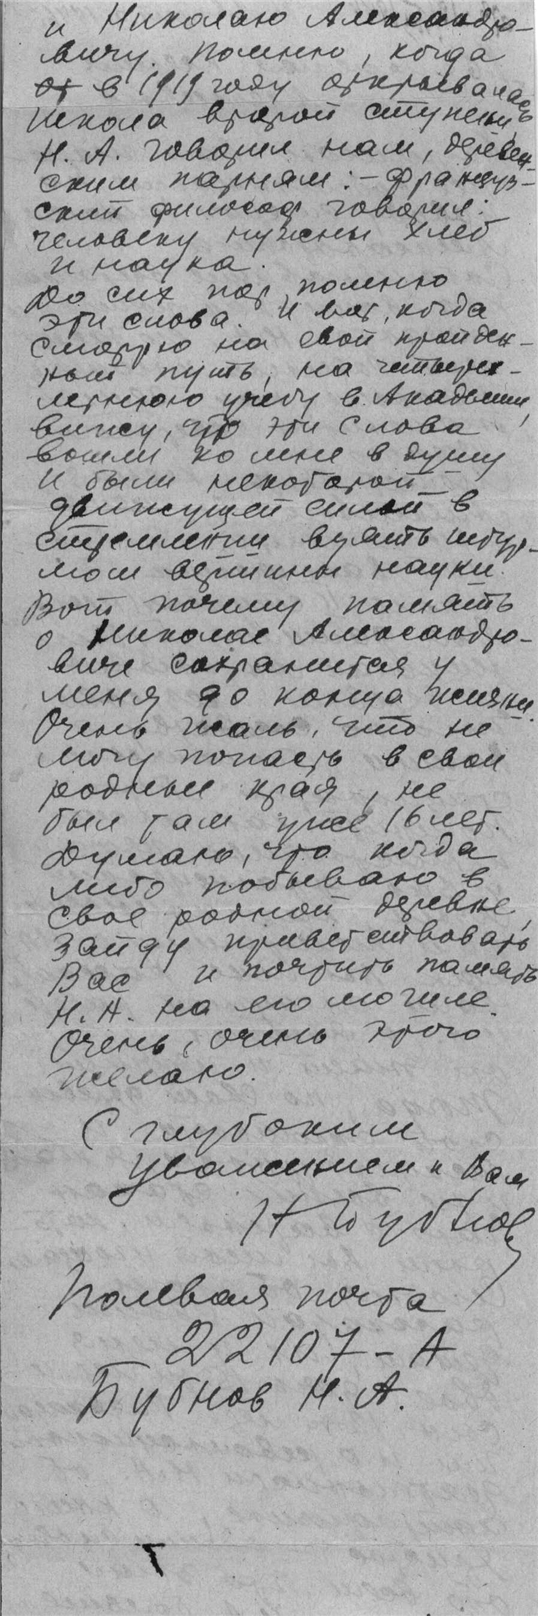 и Николаю Александро-
вичу. Помню, когда
в 1919 году открывалась
школа второй ступени,
Н. А. говорил нам, деревен-
ским парням: - француз-
ский философ говорил:
человеку нужны хлеб
и наука.
До сих пор помню
эти слова. И вот, когда
смотрю на свой пройден-
ный путь, на четырех-
летнюю учебу в Академии,
вижу, что эти слова
вошли ко мне в душу
и были некоторой
движущей силой в
стремлении взять штур-
мом вершины науки.
Вот почему память
о Николае Александро-
виче сохранится у
меня до конца жизни.
Очень жаль, что не
могу попасть в свои
родные края, не
был там уже 16 лет.
Думаю, что когда
либо побываю в
свое родной деревне,
зайду приветствовать
Вас и почтить память
Н. А. на его могиле.
Очень, очень этого
желаю.
С глубоким
уважением к Вам
Н Бубнов
Полевая почта
22107-А
Бубнов Н. А.